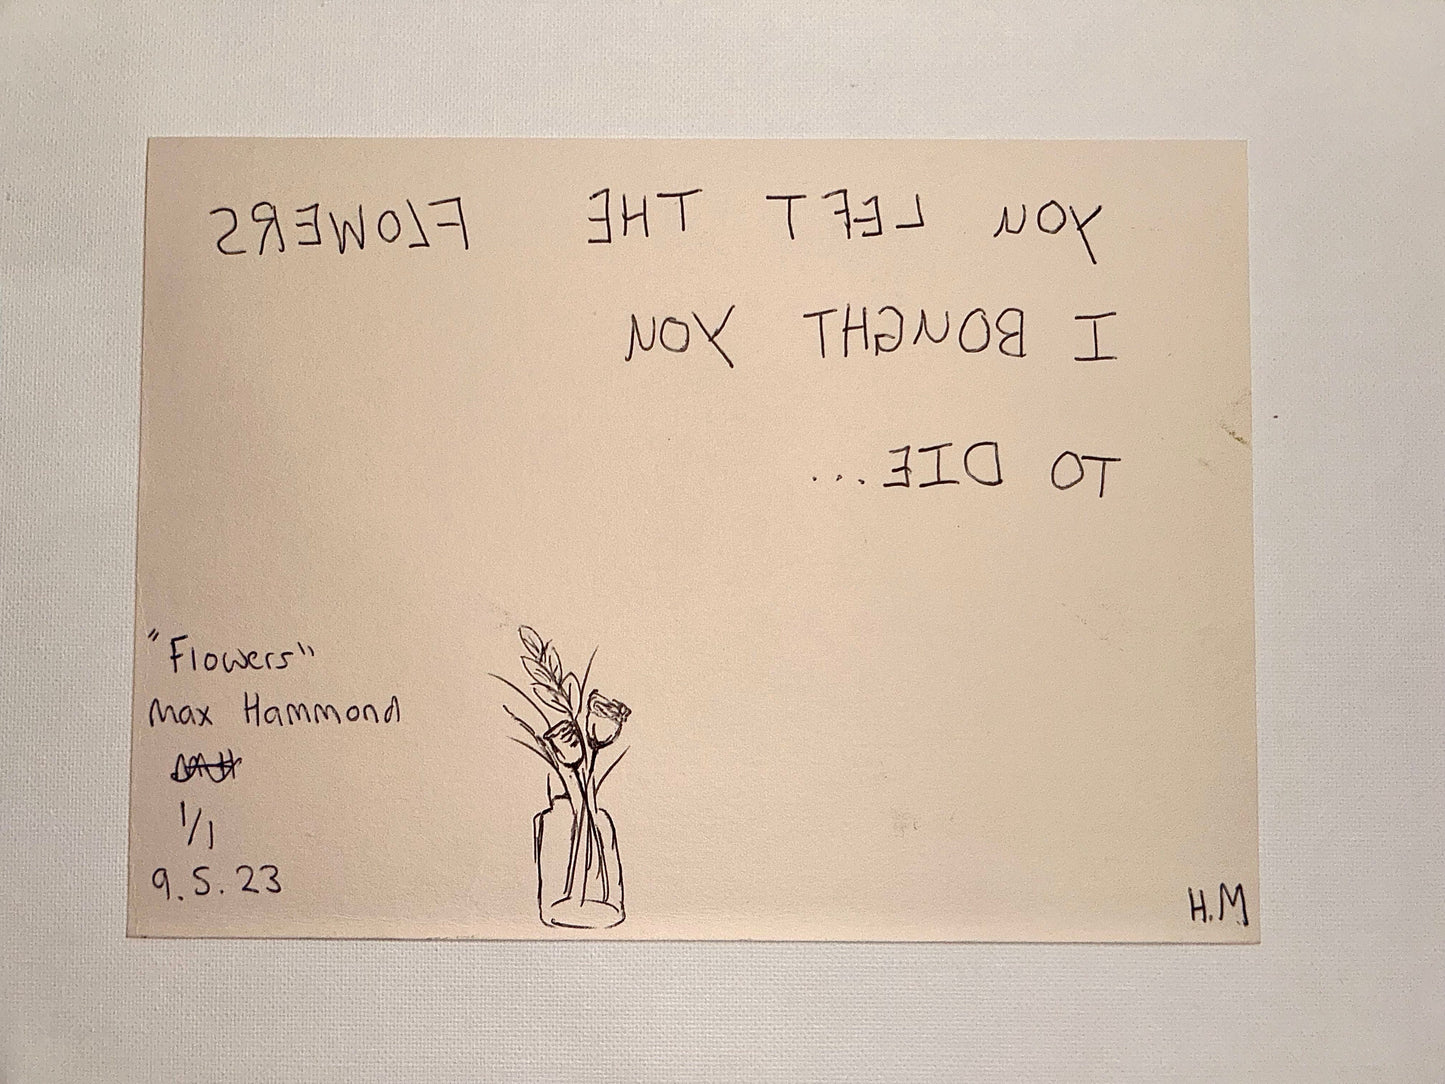 YOU LEFT THE FLOWERS
I BOUGHT YOU
TO DIE...
"Flowers"
Max Hammond
1/1
9.5.23
H.M